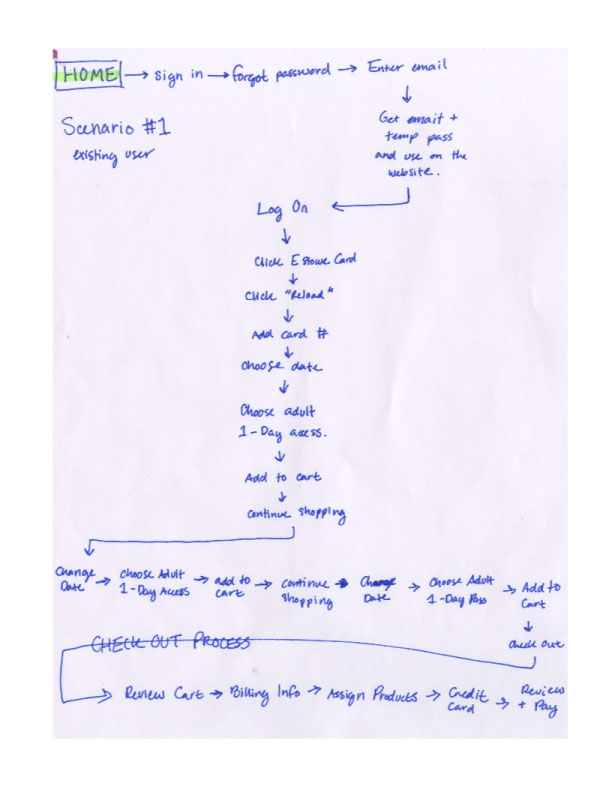 HOME → sign in → forgot password → Enter email
↓
Scenario #1
existing user
Get email +
temp pass
and use on the
website.
Log On ←
↓
Click EStowe Card
↓
Click "Reload"
↓
Add card #
↓
Choose date
↓
Choose adult
1-Day access.
↓
Add to cart
↓
Continue shopping
Change
Date → Choose Adult
1-Day Access → add to
cart → Continue
shopping → Change
Date → Choose Adult
1-Day Pass → Add to
Cart
↓
check out
CHECK OUT PROCESS
→ Review Cart → Billing Info → Assign Products → Credit
Card → Review
+ Pay